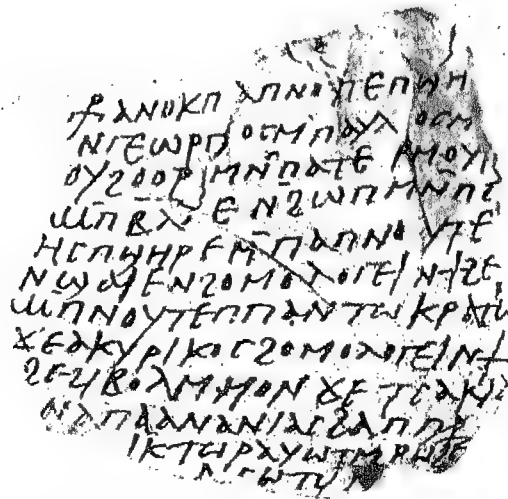 ⲁⲛⲟⲕⲡ ⲁⲡⲛⲟⲩⲧⲉⲡϣⲏ
ⲛⲅⲉⲱⲣⲅⲓⲟⲥⲙⲛⲡⲟⲩⲗⲟⲥⲙ
ⲟⲩϩⲟⲟⲣ ⲙⲛⲡⲁⲧⲉⲣⲙⲟⲩⲧ
ϣⲡⲃⲁⲗ ⲉⲛϩⲱⲡⲙⲛⲡⲉ
ⲏⲥⲡϣⲏⲣⲉⲙⲡⲁⲡⲛⲟⲩⲧⲉ
ⲛϣⲁⲓⲉⲛϩⲟⲙⲟⲗⲟⲅⲉⲓⲛϯϩⲉ
ϣⲡⲛⲟⲩⲧⲉⲡⲡⲁⲛⲧⲱⲕⲣⲁⲧⲱ
ϫⲉⲁⲕⲩⲣⲓⲕⲟⲥϩⲟⲙⲟⲗⲟⲅⲉⲓⲛϯ
ϩⲉϩⲓⲃⲟⲗⲙⲙⲟⲛϫⲉⲧⲥⲁⲛⲁ
ⲛⲁⲡⲁⲁⲛⲁⲛⲓⲁⲥϩⲁⲡⲡⲁ
ⲓⲕⲧⲱⲣⲁⲩⲱⲧⲙⲣⲱϣⲉ